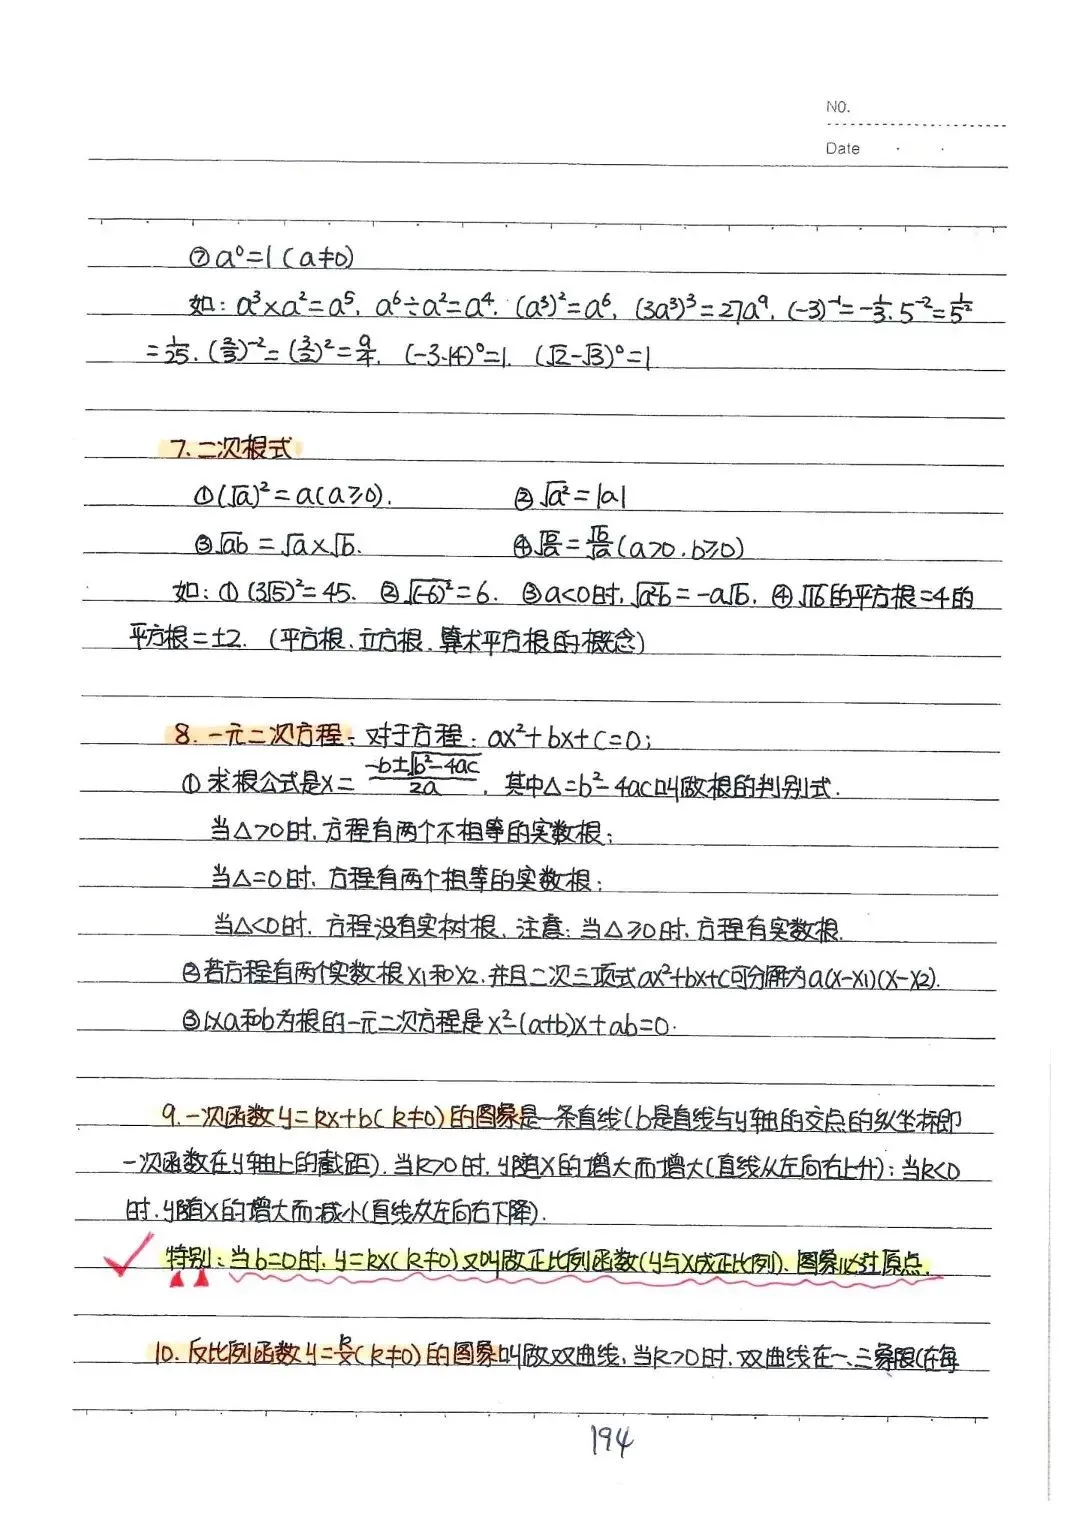 NO.
Date
⑦a⁰=1(a≠0)
如:a³×a²=a⁵, a⁶÷a²=a⁴, (a³)²=a⁶, (3a³)³=27a⁹, (-3)⁻¹=-1/3, 5⁻²=1/5²
=1/25, (2/3)⁻²=(3/2)²=9/4, (-3.14)⁰=1, (√2-√3)⁰=1
7.二次根式
①(√a)²=a(a≥0), ②√a²=|a|
③√ab=√a×√b, ④√(b/a)=√b/√a(a>0,b≥0)
如:①(3√5)²=45. ②√(-6)²=6. ③a<0时,√a²b=-a√b. ④√16的平方根=4的
平方根=±2. (平方根、立方根、算术平方根的概念)
8.一元二次方程:对于方程:ax²+bx+c=0;
①求根公式是x=(-b±√(b²-4ac))/2a, 其中△=b²-4ac叫做根的判别式.
当△>0时,方程有两个不相等的实数根;
当△=0时,方程有两个相等的实数根;
当△<0时,方程没有实树根,注意:当△≥0时,方程有实数根.
②若方程有两个实数根x1和x2,并且二次三项式ax²+bx+c可分解为a(x-x1)(x-x2).
③以a和b为根的一元二次方程是x²-(a+b)x+ab=0.
9.一次函数y=kx+b(k≠0)的图象是一条直线(b是直线与y轴的交点的纵坐标即
一次函数在y轴上的截距).当k>0时,y随x的增大而增大(直线从左向右上升);当k<0
时,y随x的增大而减小(直线从左向右下降).
特别:当b=0时,y=kx(k≠0)又叫做正比例函数(y与x成正比例),图象必过原点.
10.反比例函数y=k/x(k≠0)的图象叫做双曲线,当k>0时,双曲线在一、三象限(在每
194